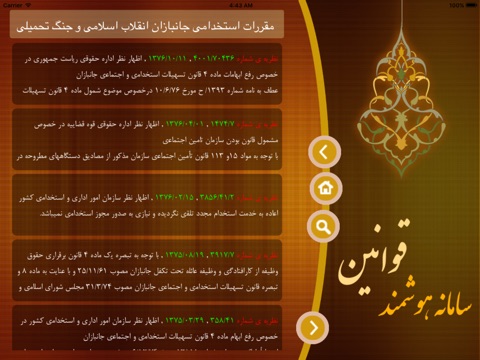 Carrier
4:42 AM
100%
مقررات استخدامی جانبازان انقلاب اسلامی و جنگ تحمیلی
نظریه ی شماره ۴۰۰۱/۷۰۴۳۶ , ۱۳۷۶/۱۰/۱۱ , اظهار نظر اداره حقوقی ریاست جمهوری در
خصوص رفع ابهامات ماده ۴ قانون تسهیلات استخدامی و اجتماعی جانبازان
عطف به نامه شماره ۱۳۹۳/ح مورخ ۱۰/۶/۷۶ درخصوص موضوع شمول ماده ۴ قانون تسهیلات
نظریه ی شماره ۱۴۷۴/۷ , ۱۳۷۶/۰۴/۰۱ , اظهار نظر اداره حقوقی قوه قضاییه در خصوص
مشمول قانون بودن سازمان تامین اجتماعی
با توجه به مواد ۱۵و ۱۱۳ قانون تأمین اجتماعی سازمان مذکور از مصادیق دستگاههای مطروحه در
نظریه ی شماره ۳۸۵۶/۴۱/۲ , ۱۳۷۶/۰۲/۱۵ , اظهار نظر سازمان امور اداری و استخدامی کشور
اعاده به خدمت استخدام مجدد تلقی نگردیده و نیازی به صدور مجوز استخدامی نمیباشد.
نظریه ی شماره ۳۹۱۷/۷ , ۱۳۷۵/۰۸/۱۹ , با توجه به تبصره یک ماده ۴ قانون برقراری حقوق
وظیفه از کارافتادگی و وظیفه عائله تحت تکفل جانبازان مصوب ۲۵/۱۱/۶۱ و با عنایت به ماده ۸ و
تبصره قانون تسهیلات استخدامی و اجتماعی جانبازان مصوب ۳۱/۳/۷۴ مجلس شورای اسلامی و
نظریه ی شماره ۳۵۸/۴۱ , ۱۳۷۵/۰۳/۲۹ , اظهار نظر سازمان امور اداری و استخدامی کشور در
خصوص رفع ابهام ماده ۴ قانون تسهیلات استخدامی و اجتماعی جانبازان
قوانین
سامانه هوشمند